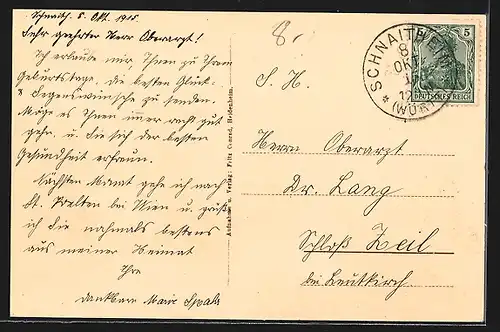 Schnaith. 5. Okt. 1915.
Sehr geehrter Herr Oberarzt!
Ich erlaube mir Ihnen zu Ihrem
Geburtstage, die besten Glück-
& Segenswünsche zu senden.
Möge es Ihnen immer recht gut
gehn. u. Sie sich der besten
Gesundheit erfreun.
Nächsten Monat gehe ich nach
St. Pölten bei Wien u. grüße
ich Sie nochmals bestens
aus meiner Heimat
Ihre
dankbare Marie
Aufnahme u. Verlag: Fritz Conrad, Heidenheim.
8.-
SCHNAITHEIM
8
OKT
15
(WÜRT
5
DEUTSCHES REICH
S. H.
Herrn Oberarzt
Dr. Lang
Schloß Zeil
bei Leutkirch